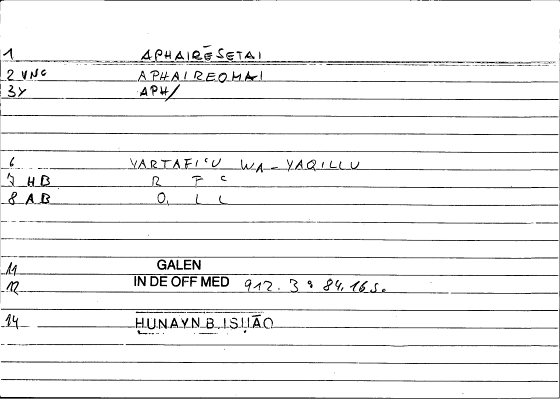 1 APHAIRĒSETAI
2 VNC APHAIREOMAI
3Y APH/
6 YARTAFI‘U WA-YAQILLU
7 HB R F ‘
8 AB Q L L
11 GALEN
12 IN DE OFF MED 912. 3 : 84.16 s.
14 HUNAYN B. ISḤĀQ